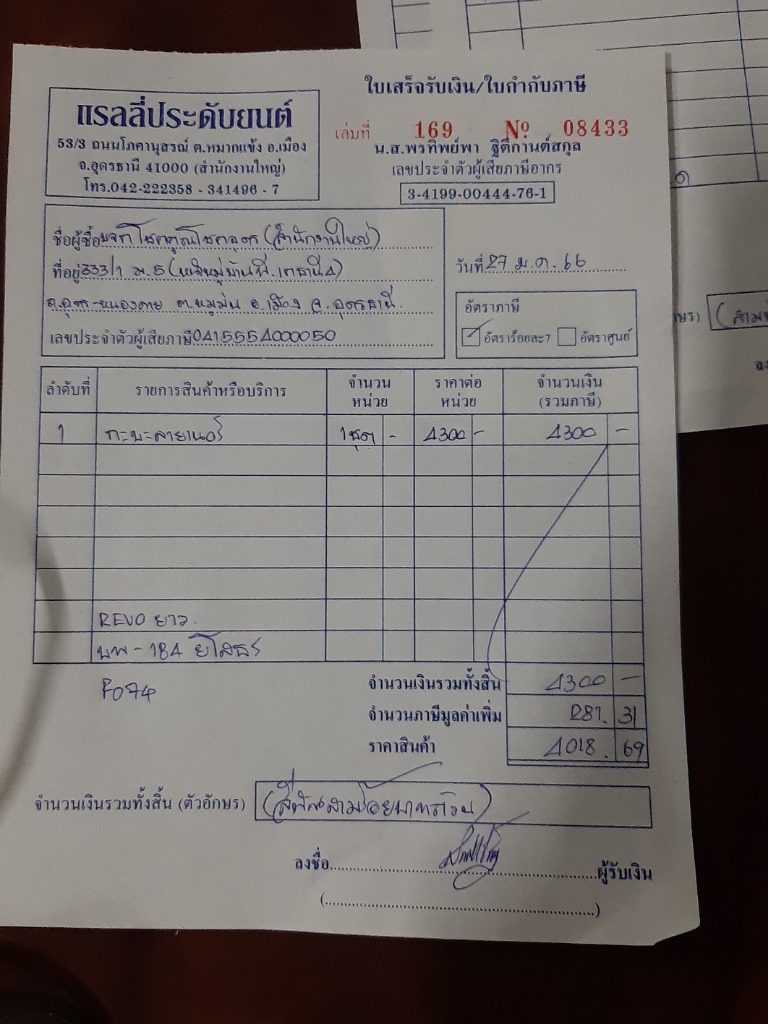 ใบเสร็จรับเงิน/ใบกำกับภาษี
แรลลี่ประดับยนต์
53/3 ถนนโภคานุสรณ์ ต.หมากแข้ง อ.เมือง
จ.อุดรธานี 41000 (สำนักงานใหญ่)
โทร.042-222358 - 341496 - 7
เล่มที่ 169 Nº 08433
น.ส.พรทิพย์พา ฐิติกานต์สกุล
เลขประจำตัวผู้เสียภาษีอากร
3-4199-00444-76-1
ชื่อผู้ซื้อ บจก โชคคูณโชคอุดร (สำนักงานใหญ่)
ที่อยู่ 333/1 ม.5 (
วันที่ 27 ม.ค. 66
ถ.อุดร-หนองคาย ต.หมูม่น อ.เมือง จ.อุดรธานี
เลขประจำตัวผู้เสียภาษี 0415554000050
อัตราภาษี
อัตราร้อยละ7 อัตราศูนย์
ลำดับที่ รายการสินค้าหรือบริการ จำนวนหน่วย ราคาต่อหน่วย จำนวนเงิน (รวมภาษี)
1 กะบะลายเนอร์ 1ชุด - 4300 - 4300 -
REVO ยาว
บพ - 184 ยโสธร
F074
จำนวนเงินรวมทั้งสิ้น 4300 -
จำนวนภาษีมูลค่าเพิ่ม 281. 31
ราคาสินค้า 4018. 69
จำนวนเงินรวมทั้งสิ้น (ตัวอักษร) (สี่พันสามร้อยบาทถ้วน)
ลงชื่อ ผู้รับเงิน
(สาม